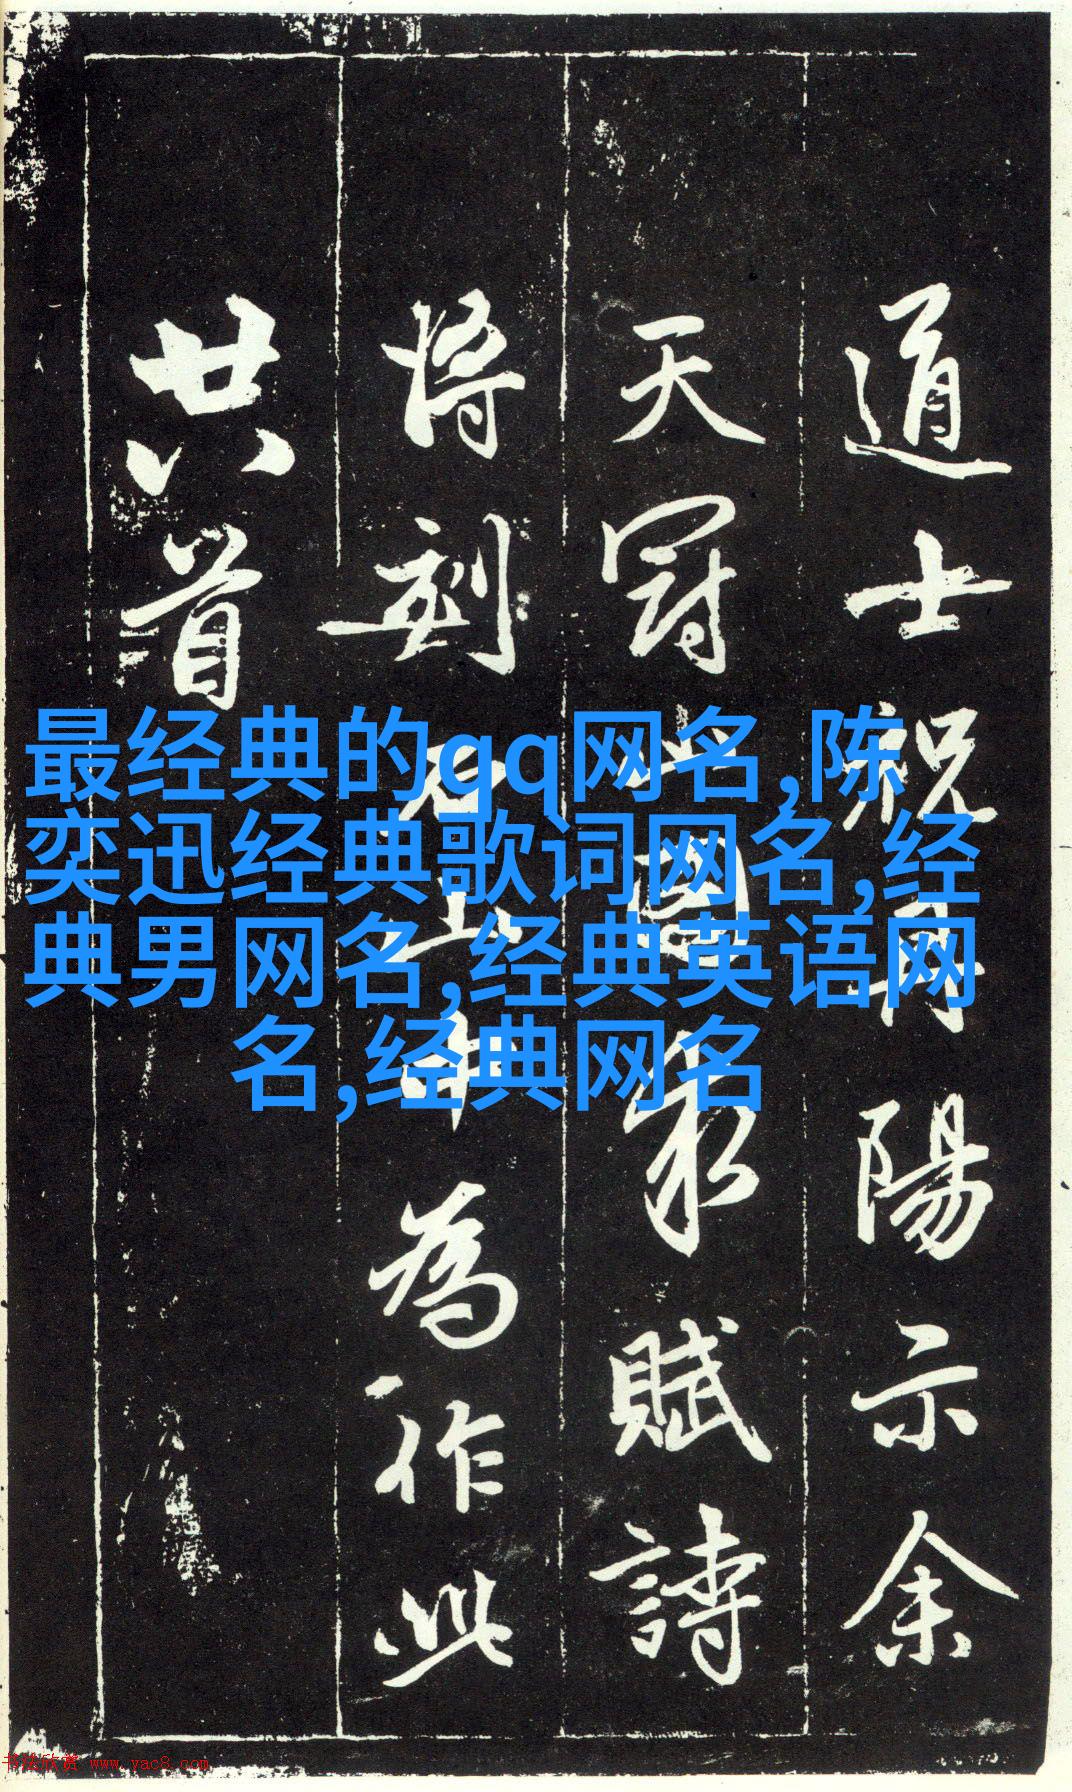 道士祝丹陽示余
天冠山圖求賦詩
將刻石山中為作此
廿八首
最经典的qq网名,陈
奕迅经典歌词网名,经
典男网名,经典英语网
名,经典网名
书法欣赏 www.yac8.com